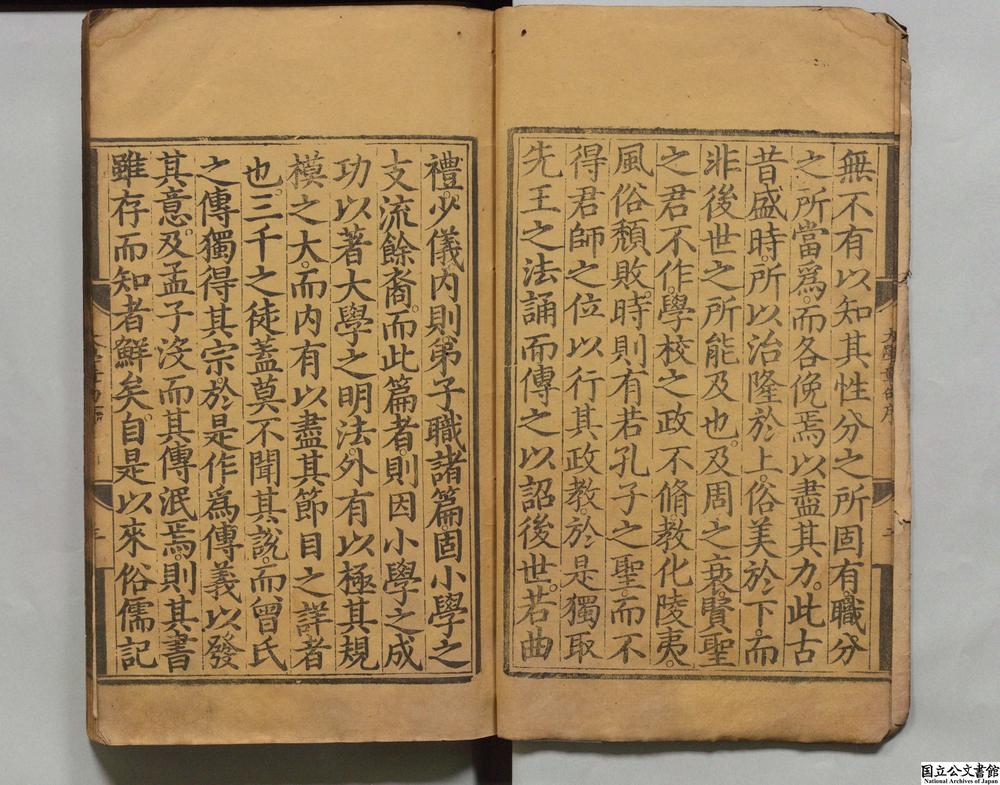 無不有以知其性分之所固有。職分
之所當爲。而各俛焉以盡其力。此古
昔盛時。所以治隆於上。俗美於下。而
非後世之所能及也。及周之衰。賢聖
之君不作。學校之政不脩。教化陵夷。
風俗頹敗。時則有若孔子之聖。而不
得君師之位以行其政教。於是獨取
先王之法。誦而傳之以詔後世。若曲
禮。少儀。内則。弟子職諸篇。固小學之
支流餘裔。而此篇者。則因小學之成
功以著大學之明法。外有以極其規
模之大。而内有以盡其節目之詳者
也。三千之徒。蓋莫不聞其說。而曾氏
之傳獨得其宗。於是作爲傳義以發
其意。及孟子沒而其傳泯焉。則其書
雖存而知者鮮矣。自是以來。俗儒記
二
国立公文書館
National Archives of Japan